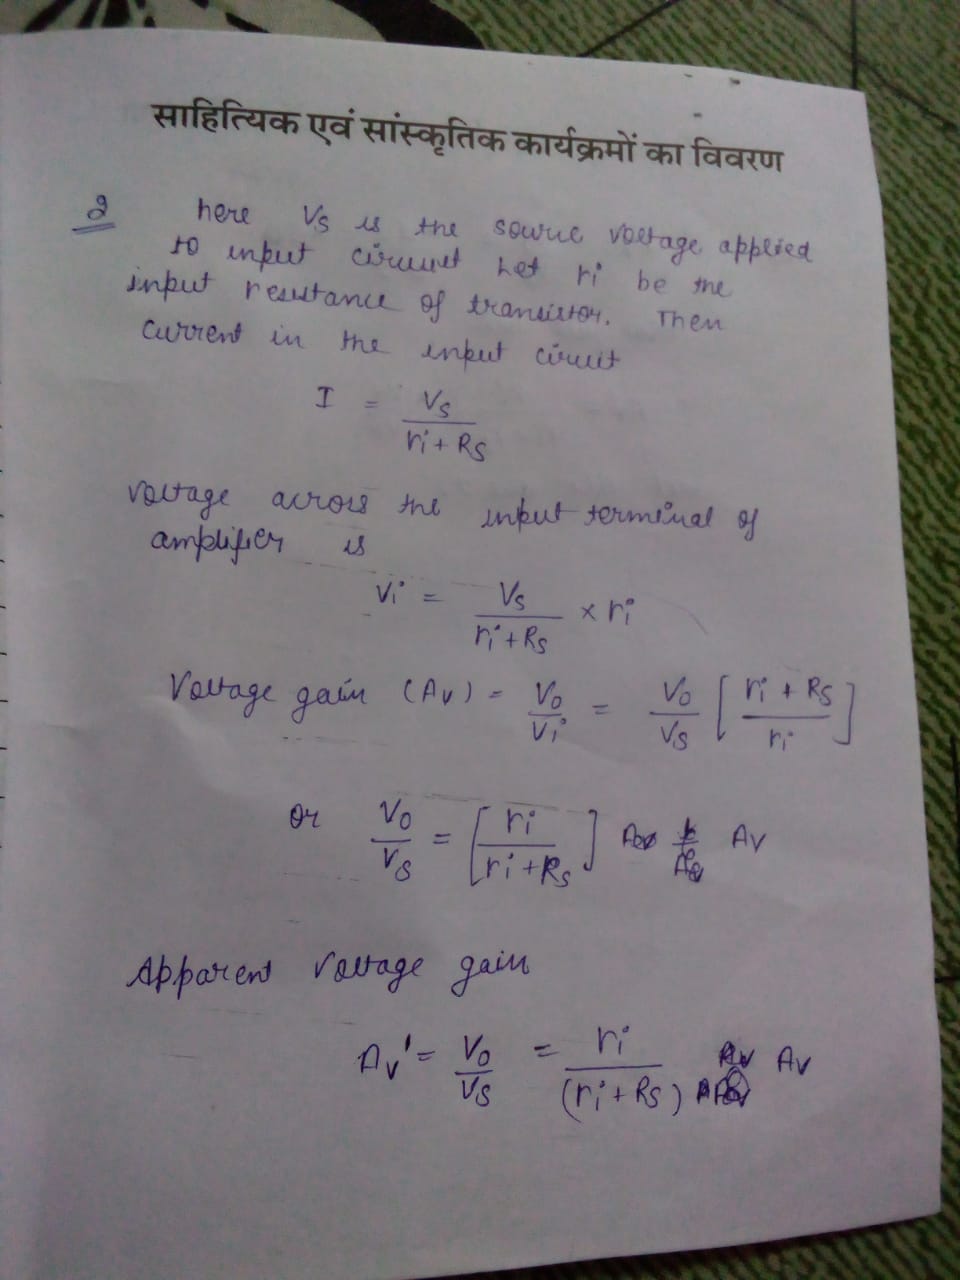 साहित्यिक एवं सांस्कृतिक कार्यक्रमों का विवरण
2 here Vs is the source voltage applied
to input circuit Let ri be the
input resistance of transistor. Then
current in the input circuit
I = Vs / (ri + Rs)
voltage across the input terminal of
amplifier is
Vi = Vs / (ri + Rs) × ri
Voltage gain (Av) = Vo/Vi = Vo/Vs [(ri + Rs) / ri]
or Vo/Vs = [ri / (ri + Rs)] Av
Apparent voltage gain
Av' = Vo/Vs = ri / (ri + Rs) Av